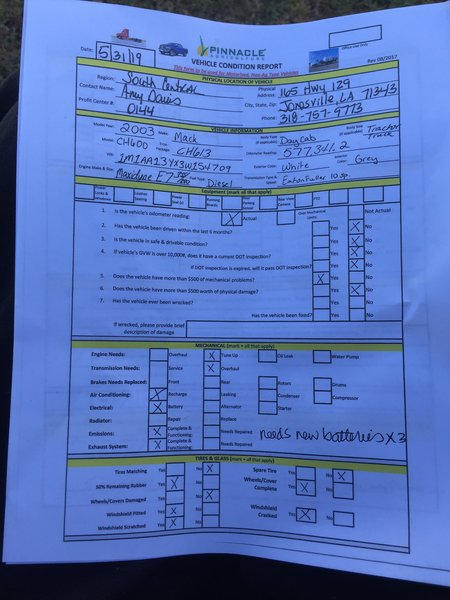 PINNACLE
AGRICULTURE
Office Use Only
Date: 5/31/19
VEHICLE CONDITION REPORT
Rev 08/2017
This form to be used for Motorized, Non-Ag Type Vehicles
PHYSICAL LOCATION OF VEHICLE
Region: South Central
Physical Address: 165 Hwy 129
Contact Name: Amy Davis
City, State, Zip: Jonesville, LA 71343
Profit Center #: 0144
Phone: 318-757-9773
VEHICLE INFORMATION
Model Year: 2003 Make: Mack
Body Type (if applicable) Daycab
Body Size (if applicable) Tractor Truck
Model: CH600 Trim Package: CH613
Odometer Reading: 577341.2
VIN: 1M1AA13YX3W154709
Exterior Color: White
Interior Color: Grey
Engine Make & Size: Maxidyne E7 Fuel Type: Diesel
Transmission Type & Speed Eaton Fuller 10 sp.
Equipment (mark all that apply)
Power Locks & Windows
Leather Seating
Power Seat (s)
Running Boards
Rear Parking
Rear View Camera
Fifth Wheel
PTO
1. Is the vehicle's odometer reading: X Actual Over Mechanical Limits Not Actual
2. Has the vehicle been driven within the last 6 months? Yes X No
3. Is the vehicle in safe & drivable condition? Yes X No
4. If vehicle's GVW is over 10,000#, does it have a current DOT inspection? Yes X No
If DOT inspection is expired, will it pass DOT inspection? Yes X No
5. Does the vehicle have more than $500 of mechanical problems? X Yes No
6. Does the vehicle have more than $500 worth of physical damage? Yes X No
7. Has the vehicle ever been wrecked? Yes No
Has the vehicle been fixed? Yes No
If wrecked, please provide brief
description of damage
MECHANICAL (mark = all that apply)
Engine Needs: Overhaul X Tune Up Oil Leak Water Pump
Transmission Needs: Service X Overhaul
Brakes Needs Replaced: Front Rear Rotors Drums
Air Conditioning: X Recharge Leaking Condenser Compressor
Electrical: X Battery Alternator Starter
Radiator: Repair Replace
Emissions: X Complete & Functioning: Needs Repaired needs new batteries x 3
Exhaust System: X Complete & Functioning: Needs Repaired
TIRES & GLASS (Mark = all that apply)
Tires Matching Yes No X Spare Tire Yes No X
50% Remaining Rubber Yes X No Wheels/Cover Complete Yes X No
Wheels/Covers Damaged Yes No X
Windshield Pitted Yes X No Windshield Cracked Yes X No
Windshield Scratched Yes X No